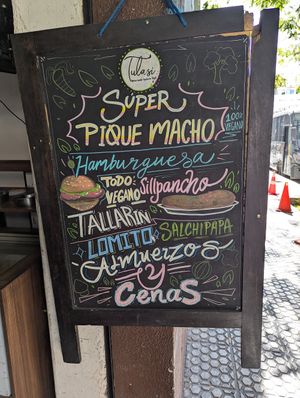 Tulasi
SUPER
PIQUE MACHO
100%
VEGANO
Hamburguesa
TODO
VEGANO
Sillpancho
TALLARIN
LOMITO
SALCHIPAPA
Almuerzos
Y
Cenas